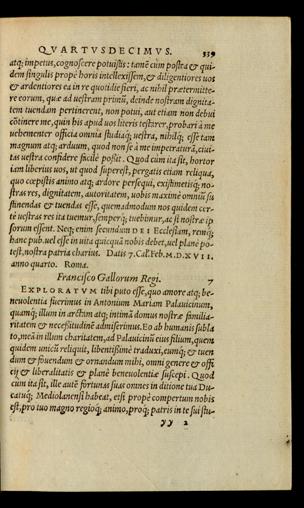 QVARTVSDECIMVS. 339
atq; impetus, cognoscere potuistis: tamē cùm postea & qui-
dem singulis propè horis intellexissem, & diligentiores uos
& ardentiores ea in re quotidie fieri, ac nihil prætermitte-
re eorum, quæ ad uestram primū, deinde nostram dignita-
tem tuendam pertinerent, non potui, aut etiam non debui
cōtinere me, quin his apud uos literis testarer, probari à me
uehementer officia omnia studiaq; uestra, nihilq; esse tam
magnum atq; arduum, quod non se à me impetraturā, ciui-
tas uestra confidere facile possit. Quod cùm ita sit, hortor
iam liberius uos, ut quod superest, pergatis etiam reliqua,
quo cœpistis animo atq; ardore persequi, existimetisq; no-
stras res, dignitatem, autoritatem, uobis maximè omniū su
stinendas & tuendas esse, quemadmodum nos quidem cer-
tè uestras res ita tuemur, semperq; tuebimur, ac si nostræ ip
sorum essent. Neq; enim secundum DEI Ecclesiam, remq;
hanc pub. uel esse in uita quicquā nobis debet, uel planè po-
test, nostra patria charius. Datis 7. Cal. Feb. M.D.XVII.
anno quarto. Roma.
Francisco Gallorum Regi. 7
EXPLORATVM tibi puto esse, quo amore atq; be-
neuolentia fuerimus in Antonium Mariam Palauicinum,
quamq; illum in arctim atq; intimā domus nostræ familia-
ritatem & necessitudinē admiserimus. Eo ab humanis subla
to, meā in illum charitatem, ad Palauicinū eius filium, quem
quidem unicū reliquit, libentissimè traduxi, eumq; & tuen
dum & fouendum & ornandum mihi, omni genere & offi
cij & liberalitatis & planè beneuolentiæ suscepi. Quod
cùm ita sit, ille autē fortunas suas omnes in ditione tua Du-
catuq; Mediolanensi habeat, etsi propè compertum nobis
est, pro tuo magno regioq; animo, proq; patris in te sui stu-
yy 2